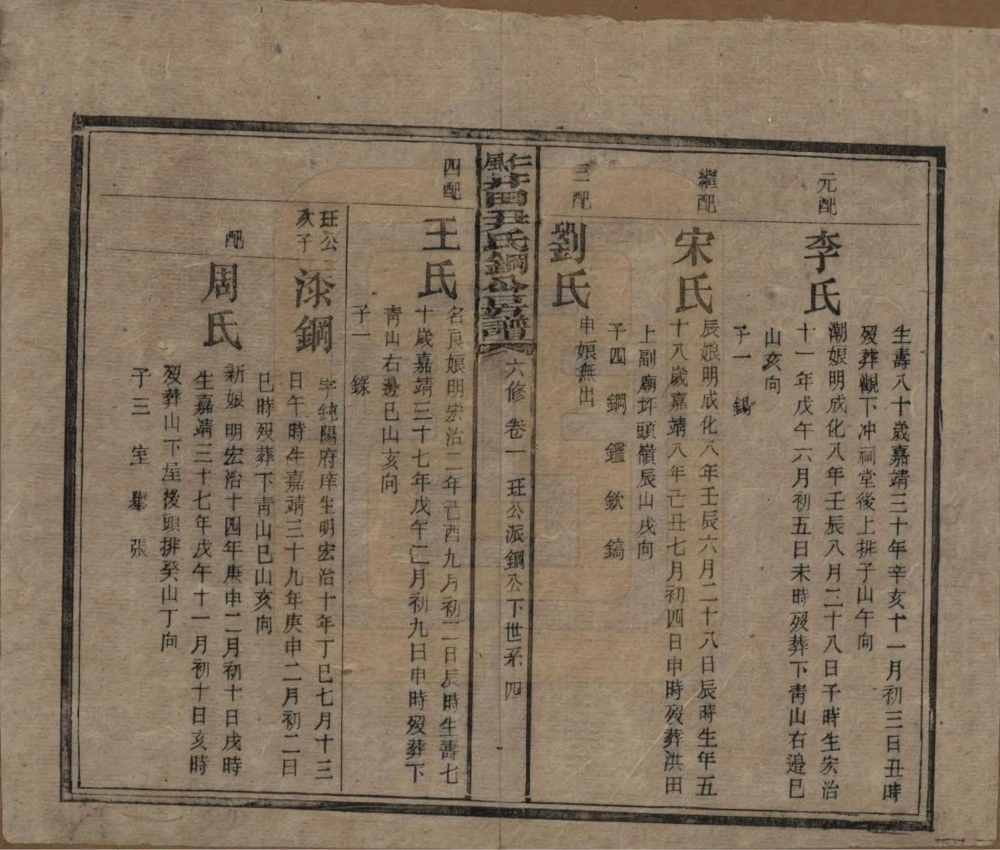 生壽八十歲嘉靖三十年辛亥十一月初三日丑時
歿葬觀下冲祠堂後上排子山午向
元配
李氏
潮娘明成化八年壬辰八月二十八日子時生宏治
十一年戊午六月初五日未時歿葬下靑山右邊巳
山亥向
子一 錫
繼配
宋氏
辰娘明成化八年壬辰六月二十八日辰時生年五
十八歲嘉靖八年己丑七月初四日申時歿葬洪田
上副廟坪頭嶺辰山戌向
子四 鋼 鑑 欽 鎬
三配
劉氏
申娘無出
仁風芹田尹氏鋼公房譜
六修 卷一 珏公派鋼公下世系 四
四配
王氏
名良娘明宏治二年己酉九月初二日辰時生壽七
十歲嘉靖三十七年戊午二月初九日申時歿葬下
靑山右邊巳山亥向
子一 錄
珏公次子
漆鋼
字純陽府庠生明宏治十年丁巳七月十三
日午時生嘉靖三十九年庚申二月初二日
巳時歿葬下靑山巳山亥向
配
周氏
新娘明宏治十四年庚申二月初十日戌時
生嘉靖三十七年戊午十一月初十日亥時
歿葬山下屋後頭排癸山丁向
子三 室 張